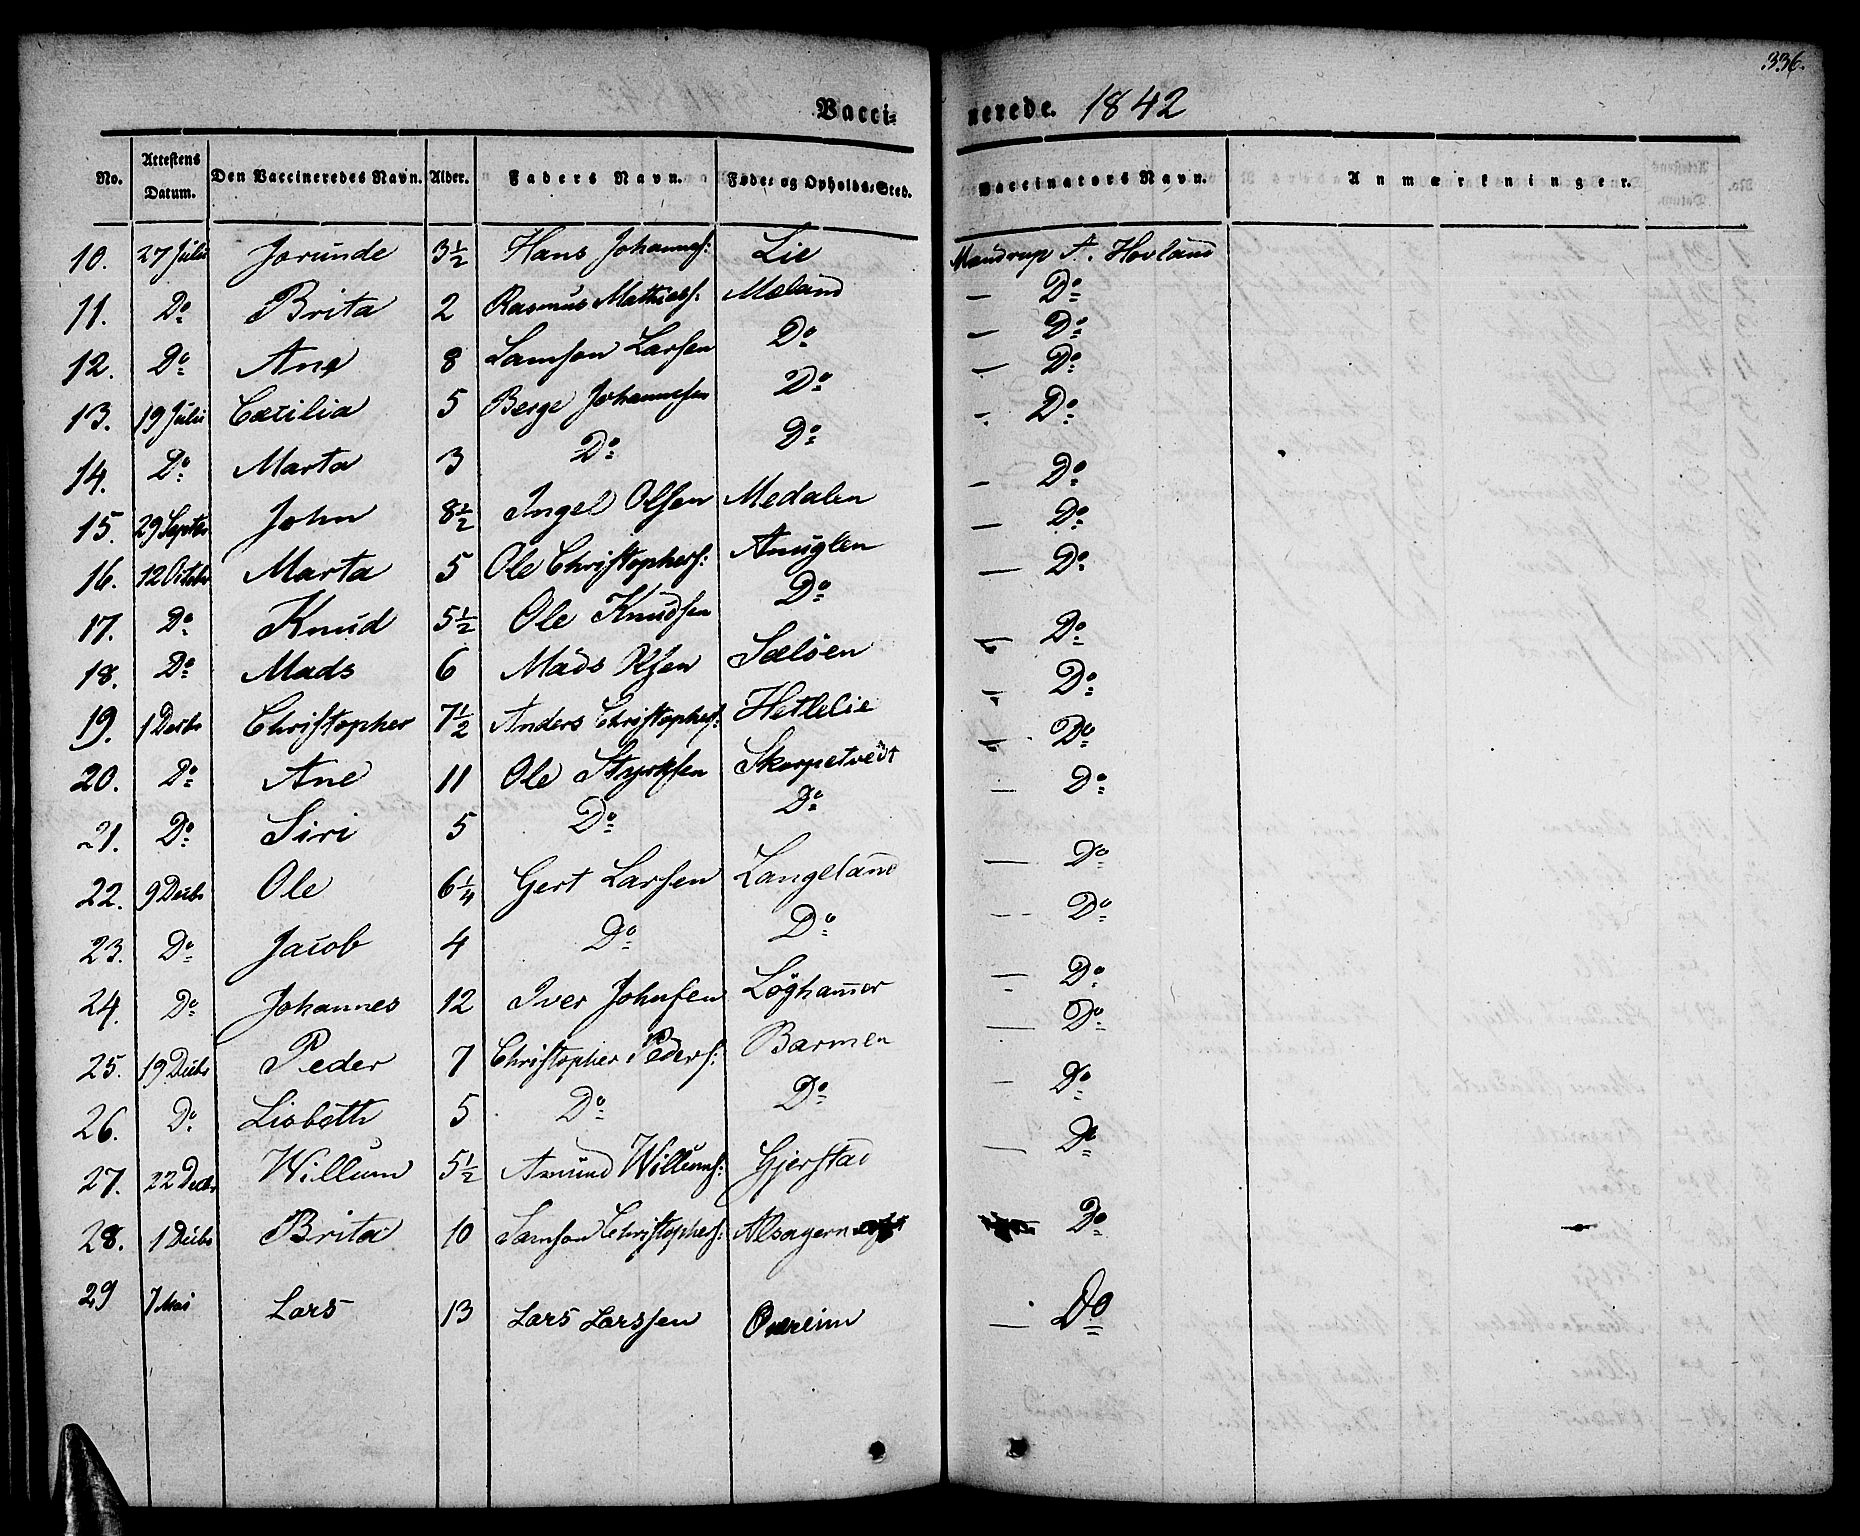 336.
Vaccinerede. 1842
No. | Attestens Datum. | Den Vaccineredes Navn. | Alder. | Faders Navn. | Føde- og Opholds-Sted. | Vaccinators Navn. | Anmærkninger.
10. | 27 Julii | Jorunde | 3½ | Hans Johannesf: | Lie | Mandrup A. Hovland
11. | Do | Brita | 2 | Rasmus Mathiasf: | Møland | — Do
12. | Do | Ane | 8 | Samson Larsen | Do | — Do
13. | 19 Julii | Cæcilia | 5 | Berge Johannesen | Do | — Do
14. | Do | Marta | 3 | Do | Do | - Do
15. | 29 Septbr | John | 8½ | Ingel Olsen | Medalen | — Do
16. | 12 Octbr | Marta | 5 | Ole Christophersf: | Amuglen | — Do
17. | Do | Knud | 5½ | Ole Knudsen | Do | — Do
18. | Do | Mads | 6 | Mads Olsen | Sæløen | — Do
19. | 1 Decbr | Christopher | 7½ | Anders Christophersf: | Hetlelie | — Do
20. | Do | Ane | 11 | Ole Styrksen | Skorpetvedt | — Do
21. | Do | Siri | 5 | Do | Do | — Do
22. | 9 Decbr | Ole | 6¼ | Gert Larsen | Langeland | — Do
23. | Do | Jacob | 4 | Do | Do | — Do
24. | Do | Johannes | 12 | Iver Johnsen | Løghammer | — Do
25. | 19 Decbr | Peder | 7 | Christopher Pedersf: | Barmen | — Do
26. | Do | Lisbeth | 5 | Do | Do | — Do
27. | 22 Decbr | Willum | 5½ | Amund Willumsf: | Gjerstad | — Do
28. | 1 Decbr | Brita | 10 | Samson Christophersf: | Alsagern | Do
29 | 7 Mai | Lars | 13 | Lars Larssen | | — Do